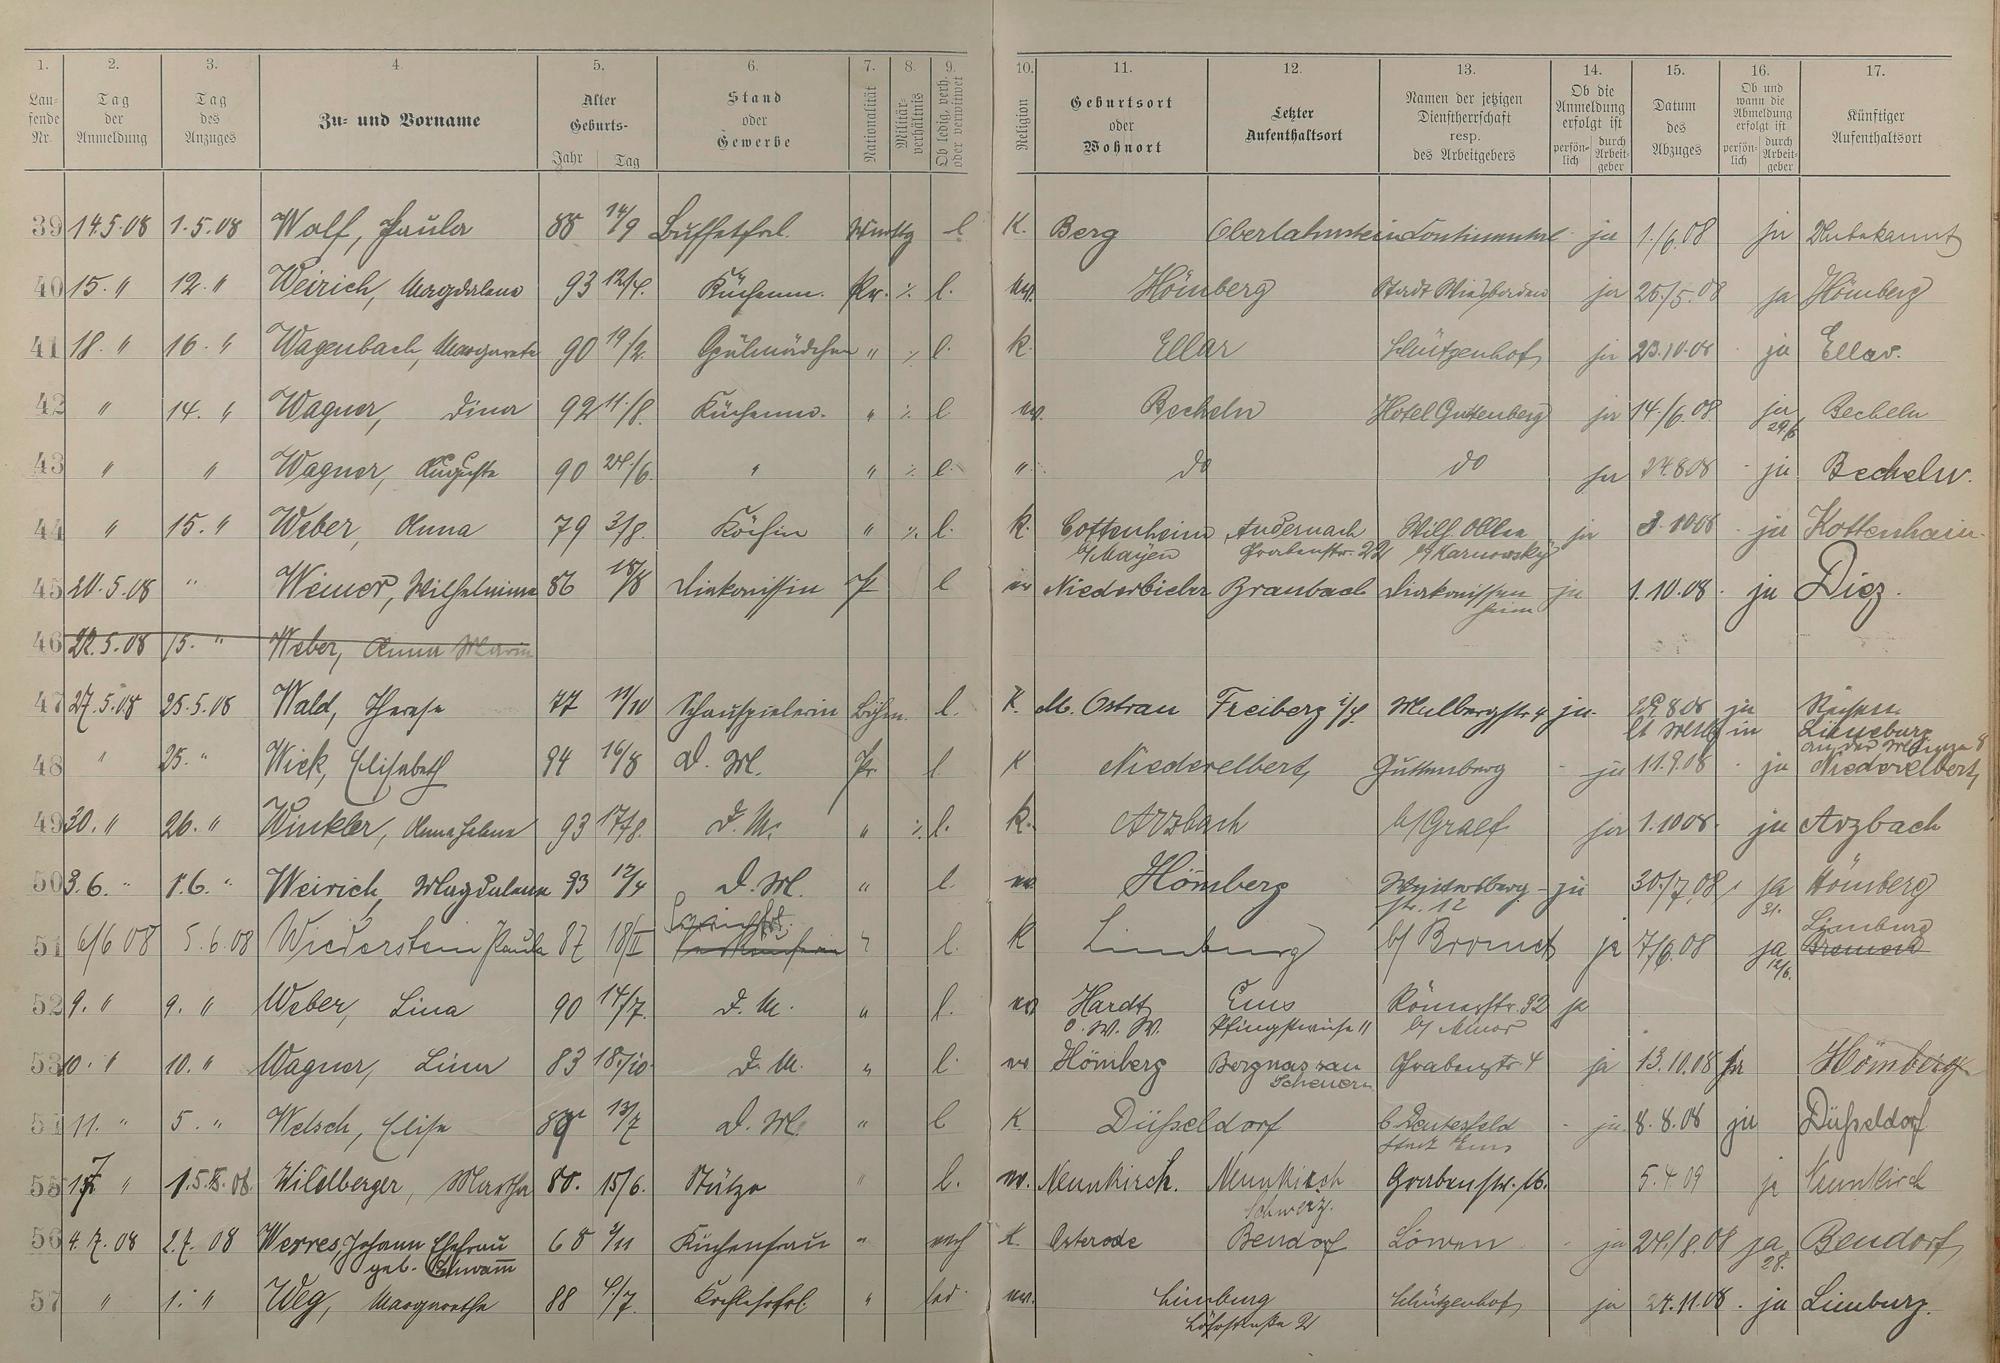 1. 2. 3. 4. 5. 6. 7. 8. 9. 10. 11. 12. 13. 14. 15. 16. 17.
Lau-fende Nr. Tag der Anmeldung Tag des Anzuges Zu- und Vorname Alter Geburts- Jahr Tag Stand oder Gewerbe Nationalität Militär-verhältnis Ob ledig, verh. oder verwitwet Religion Geburtsort oder Wohnort Letzter Aufenthaltsort Namen der jetzigen Dienstherrschaft resp. des Arbeitgebers Ob die Anmeldung erfolgt ist persön-lich durch Arbeit-geber Datum des Abzuges Ob und wann die Abmeldung erfolgt ist persön-lich durch Arbeit-geber Künftiger Aufenthaltsort
39 14.5.08 1.5.08 Wolf, Paula 88 14/9 Buffetfrl. l. K. Berg Oberlahnstein Continental ja 1./6.08 ja Unbekannt
40 15. " 12. " Weirich, Magdalene 93 12/4. Küchenm. Pr. ·/. l. ev. Hömberg Stadt Wiesbaden ja 25./5.08 ja Hömberg
41 18. " 16. " Wagenbach, Margarete 90 19/2. Spülmädchen " ·/. l. K. Ellar Schützenhof ja 23.10.08 ja Ellar.
42 " 14. " Wagner, Dina 92 11./8. Küchenm. " ·/. l. ev. Becheln Hotel Guttenberg ja 14./6.08. ja 29/6 Becheln
43 " " Wagner, Auguste 90 24/6. " " ·/. l. " do do ja 24.8.08 ja Becheln.
44 " 15. " Weber, Anna 79 3/8. Köchin " ·/. l. K. Cottenheim b/Mayen Andernach Grabenstr. 22 b/Karnowsky ja 3.10.08 ja Kottenheim.
45 20.5.08 " Weimer, Wilhelmine 86 18/8 Diakonissin Pr l ev Niederbieber Braubach Diakonissenheim ja 1.10.08. ja Diez.
46 22.5.08 15. " Weber, Anna Maria
47 27.5.08 25.5.08 Wald, Therese 77 11/10 Schauspielerin Böhm. l. K. M. Ostrau Freiberg i/S. ja 29.8.08 ja Lüneburg
48 " 25. " Wick, Elisabeth 94 16/8 D. M. Pr. l. K Niederelbert, Guttenberg ja 11.9.08 ja Niederelbert,
49 30. " 26. " Winkler, Anna Helena 93 17/8. D. M. " ·/. l. K. Arzbach b/Graef ja 1.10.08. ja Arzbach
50 3.6. " 1.6. " Weirich, Magdalena 93 12/4 D. M. " l. ev. Hömberg str. 12 ja 30./7.08 ja 31. Hömberg
51 6/6 08 5.6.08 Wiederstein Paula 87 18/II " l. K Limburg b/ Bromet ja 7/6.08 ja 12/6. Limburg
52 9. " 9. " Weber, Lina 90 14/7. D. M. " l. ev Hardt, O. W. W. Ems Pfingstwiese 11 Römerstr. 92 ja
53 10. " 10. " Wagner, Lina 83 18./10. D. M. " l. ev Hömberg Bergnassau Scheuern Grabenstr. 4 ja 13.10.08 ja Hömberg
54 11. " 5. " Welsch, Elise 89 13/7 D. M. " l K. Düsseldorf Stadt Ems ja 8.8.08 ja Düsseldorf
55 17 " 1.5.08. Wildberger, Martha 80. 15/6. Stütze " l. ev. Neunkirch. Neunkirch Schweiz. Grabenstr. 16. 5.4 09 ja Neunkirch
56 4.7.08 2.7.08 Werres, Johann Ehefrau 68 2/11 Küchenfrau " verh K. Osterode Bendorf Löwen ja 24./8.08 ja 28. Bendorf,
geb.
57 " 1. " Weg, Margarethe 88 4./7. Kochlehrfrl. " led. ev. Limburg Schützenhof, ja 24.11.08. ja Limburg.
Löhrstraße 2